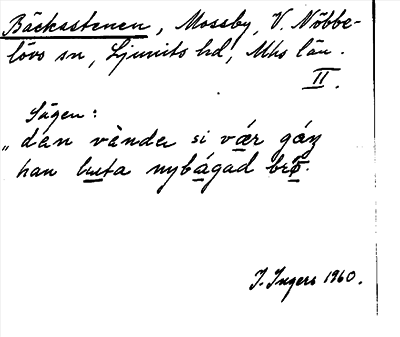 Bäckastenen, Mossby, V. Nöbbe-
lövs sn, Ljunits hd, Mhs län.
II.
Sägen:
„dan vànder si vár gáŋ
han luta nybágad brø.
I. Ingers 1960.